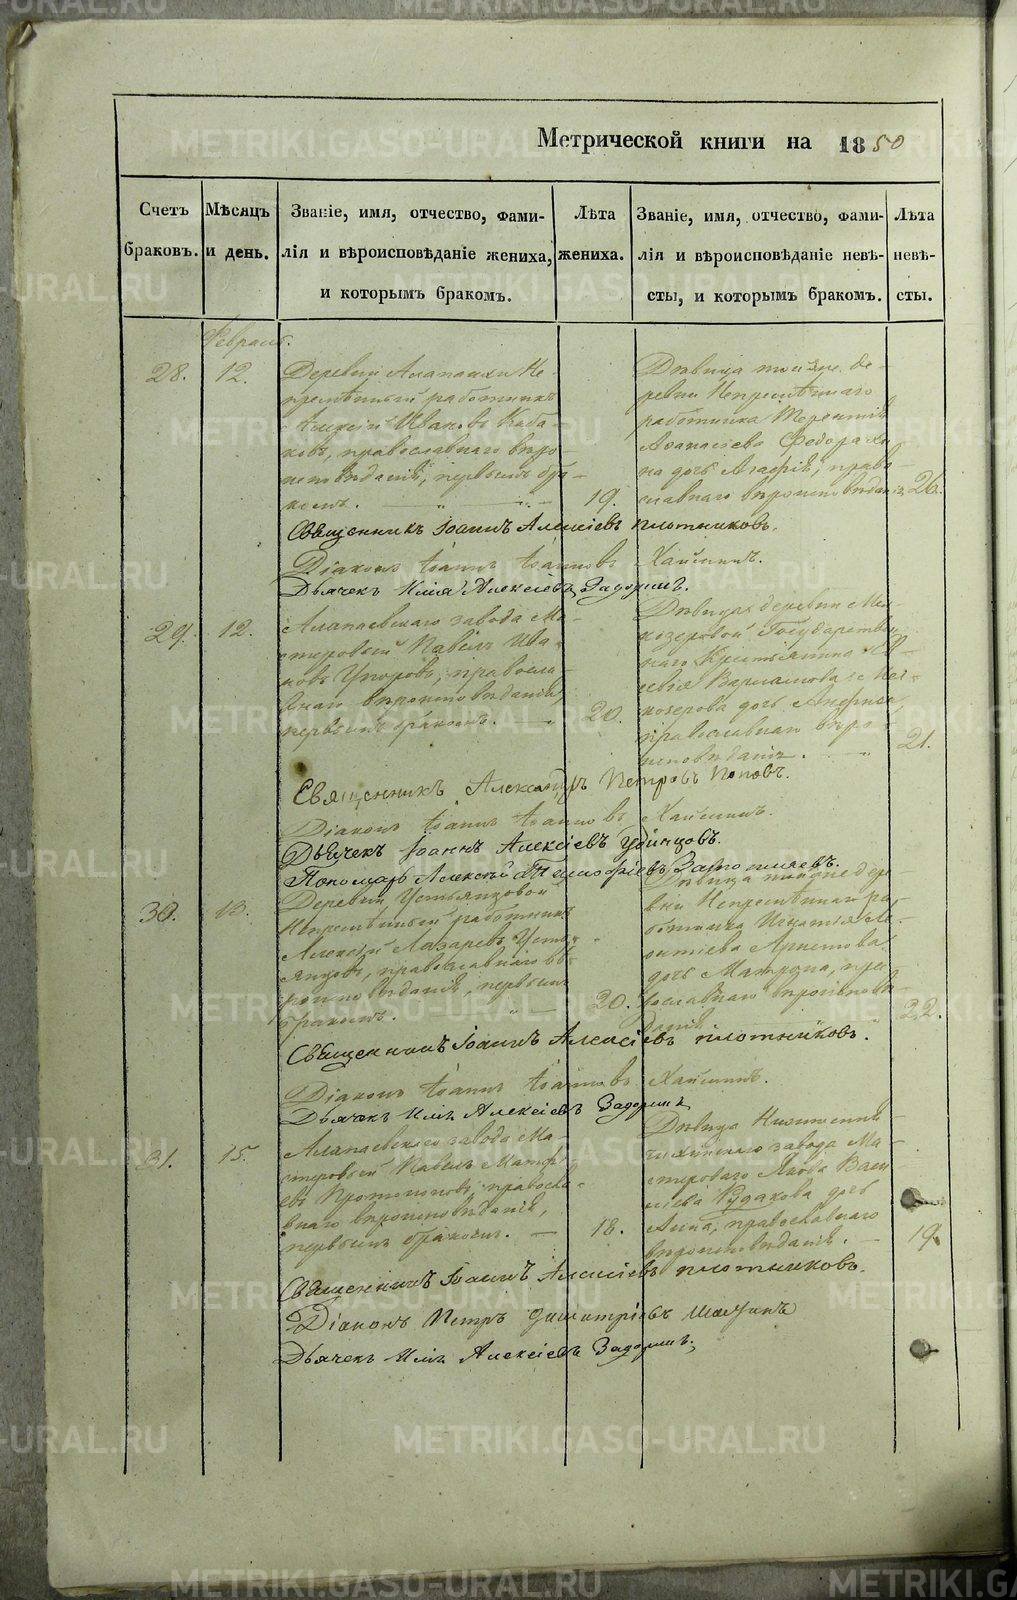 Метрической книги на 1850
Счетъ браковъ.
Мѣсяцъ и день.
Званіе, имя, отчество, фами-
лія и вѣроисповѣданіе жениха,
и которымъ бракомъ.
Лѣта жениха.
Званіе, имя, отчество, фами-
лія и вѣроисповѣданіе невѣ-
сты, и которымъ бракомъ.
Лѣта невѣ-
сты.
Февраль.
28.
12.
Деревни Алапаихи Не-
премѣнный работникъ
Алексѣй Ивановъ Каба-
ковъ, православнаго вѣро-
исповѣданія, первымъ бра-
комъ.
19.
Дѣвица той же де-
ревни Непремѣннаго
работника Терентія
Афанасьева Федорахи-
на дочь Агафія, право-
славнаго вѣроисповѣданія,
26.
Священникъ Іоаннъ Алексіевъ Плотниковъ.
Діаконъ Іоаннъ Іоанновъ Хайминъ.
Дьячекъ Илія Алексіевъ Задоринъ.
29.
12.
Алапаевскаго завода Ма-
стеровый Павелъ Ива-
новъ Упоровъ, правосла-
внаго вѣроисповѣданія,
первымъ бракомъ.
20.
Дѣвица деревни Мел-
козеровой Государствен-
наго Крестьянина
Варламова Мел-
козерова дочь Анфиса,
православнаго вѣро-
исповѣданія.
21.
Священникъ Александръ Петровъ Поповъ.
Діаконъ Іоаннъ Іоанновъ Хайминъ.
Дьячекъ Іоаннъ Алексіевъ Удинцовъ.
Пономарь Алексій Тимофіевъ
30.
13.
Деревни Устьянцовой
Непремѣнный работникъ
Алексѣй Лазаревъ Усть-
янцовъ, православнаго вѣ-
роисповѣданія, первымъ
бракомъ.
20.
Дѣвица тойже дере-
вни Непремѣннаго ра-
ботника Игнатія Ле-
онтіева
дочь Матрона, пра-
вославнаго вѣроисповѣ-
данія.
22.
Священникъ Іоаннъ Алексіевъ Плотниковъ.
Діаконъ Іоаннъ Іоанновъ Хайминъ.
Дьячекъ Илія Алексіевъ Задоринъ
31.
15.
Алапаевскаго завода Ма-
стеровый Павелъ Матфі-
евъ Протопоповъ, правосла-
внаго вѣроисповѣданія,
первымъ бракомъ.
18.
Дѣвица Нижнении-
чихинскаго завода Ма-
стероваго Якова Васи-
льева Рудакова дочь
Анна, православнаго
вѣроисповѣданія.
19.
Священникъ Іоаннъ Алексіевъ Плотниковъ.
Діаконъ Петръ Димитріевъ
Дьячекъ Илія Алексіевъ Задоринъ.
METRIKI.GASO-URAL.RU